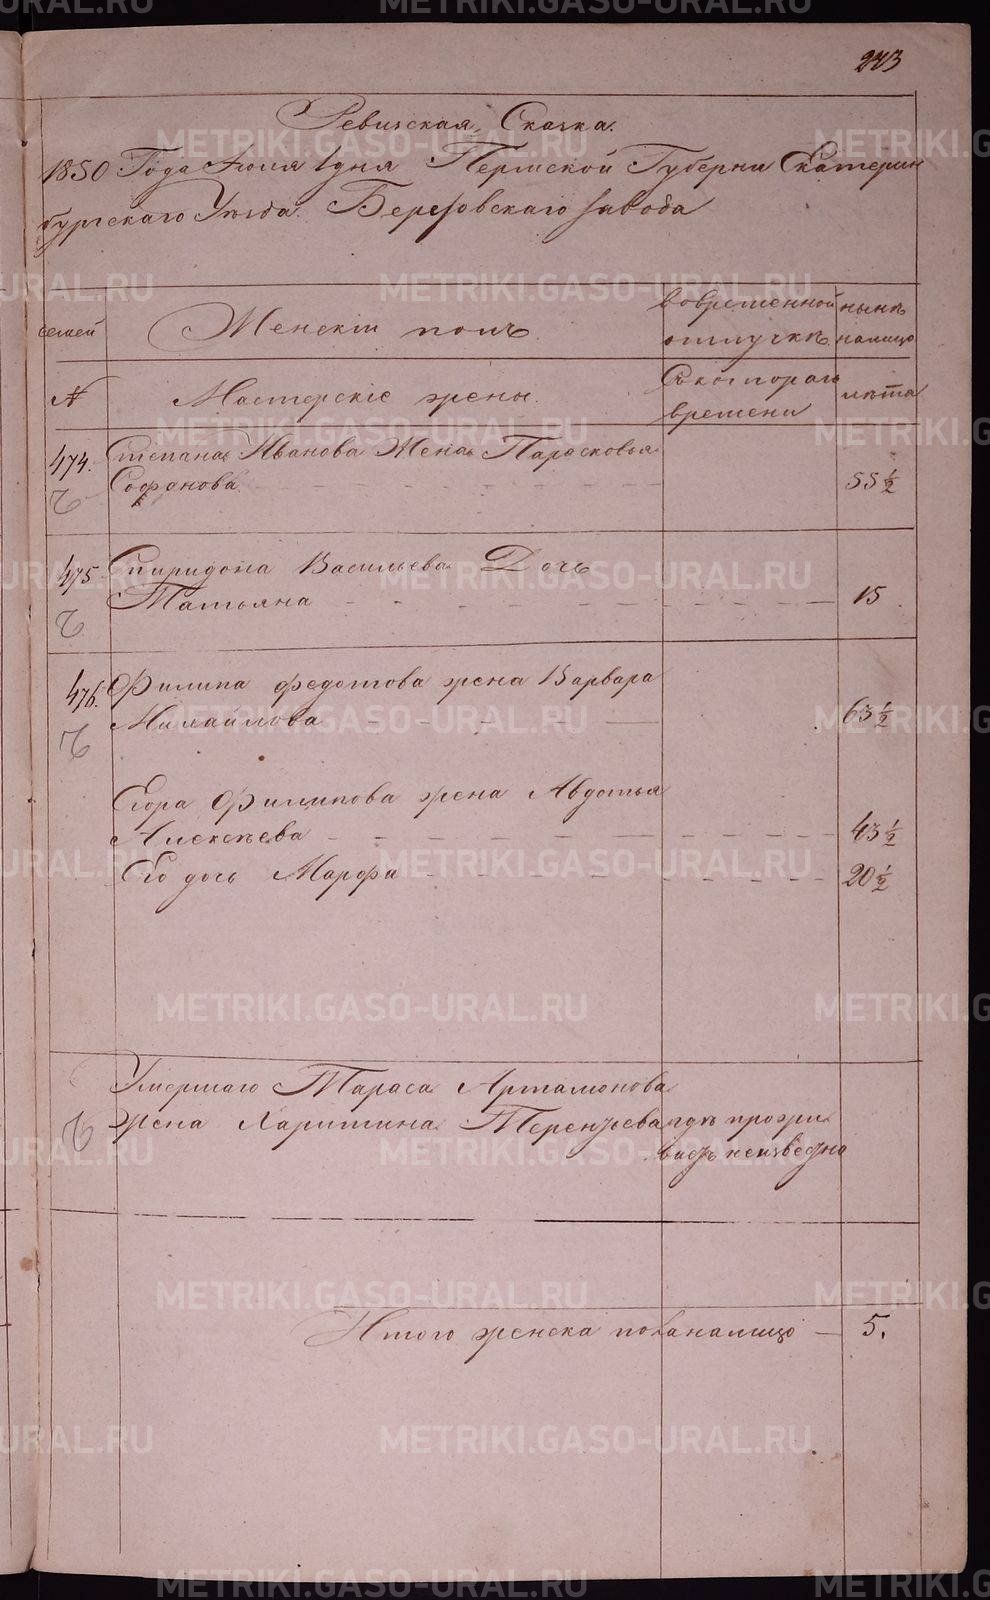 273
Ревизская Сказка.
1850 Года Июля 1 дня Пермской Губерни Екатерин
бургскаго Уѣзда. Березовскаго завода
семей
Женскій полъ.
во временной
отлучкѣ.
нынѣ
налицо
№
Мастерскіе жены.
Съ котораго
времени
лѣта
474. Степана Иванова Жена Парасковья
Софонова 55 1/2
475. Спиридона Васильева Дочь
Татьяна 15
476. Филипа Федотова жена Варвара
Михайлова 63 1/2
Егора Филипова жена Авдотья
Алексѣева 43 1/2
Его дочь Марфа 20 1/2
Умершаго Тараса Артамонова
жена Харитина Терентьева гдѣ прожи
ваетъ неизвестно
Итого женска пола налицо — 5.
METRIKI.GASO-URAL.RU